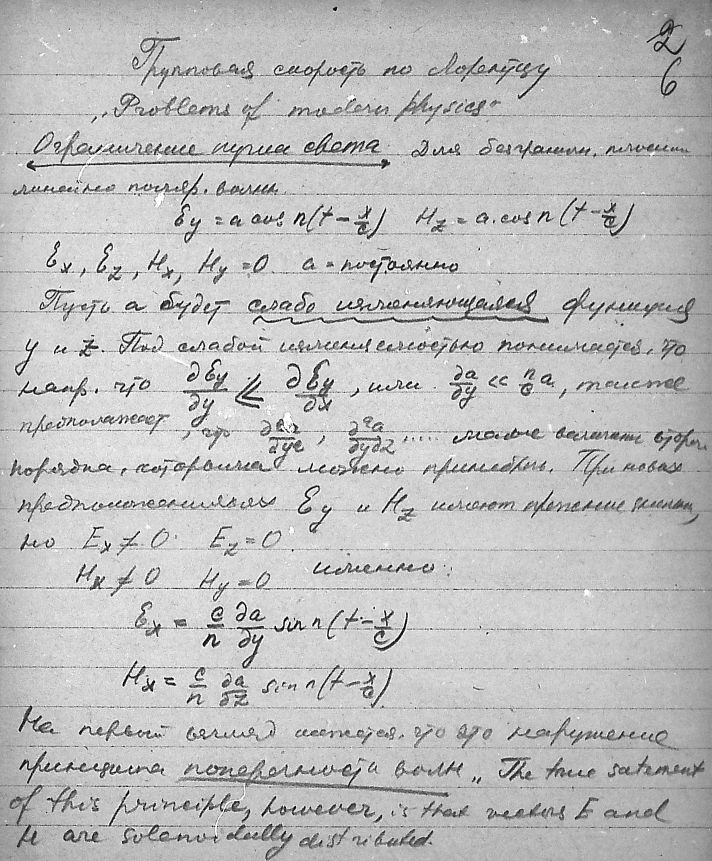 2
6
Групповая скорость по Лорентцу
„Problems of modern physics“
Ограничение пучка света. Для безгранич. плоской
линейно поляр. волны
Ey = a cos n(t − x/c) Hz = a. cos n(t − x/c)
Ex, Ez, Hx, Hy = 0. a = постоянно
Пусть a будет слабо изменяющаяся функция
y и z. Под слабой изменяемостью понимается, что
напр. что ∂Ey/∂y ≪ ∂Ey/∂x, или ∂a/∂y << n/c a, также
предполагает, что ∂²a/∂y², ∂²a/∂y∂z ..... малые величины второго
порядка, которыми можно пренебречь. При новых
предположениях Ey и Hz имеют прежние значения,
но Ex ≠ 0 Ez = 0
Hx ≠ 0 Hy = 0 именно:
Ex = c/n ∂a/∂y sin n(t − x/c)
Hx = c/n ∂a/∂z sin n(t − x/c)
На первый взгляд кажется, что это нарушение
принципа поперечности волн „The true satement
of this principle, however, is that vectors E and
H are solenoidally distributed.